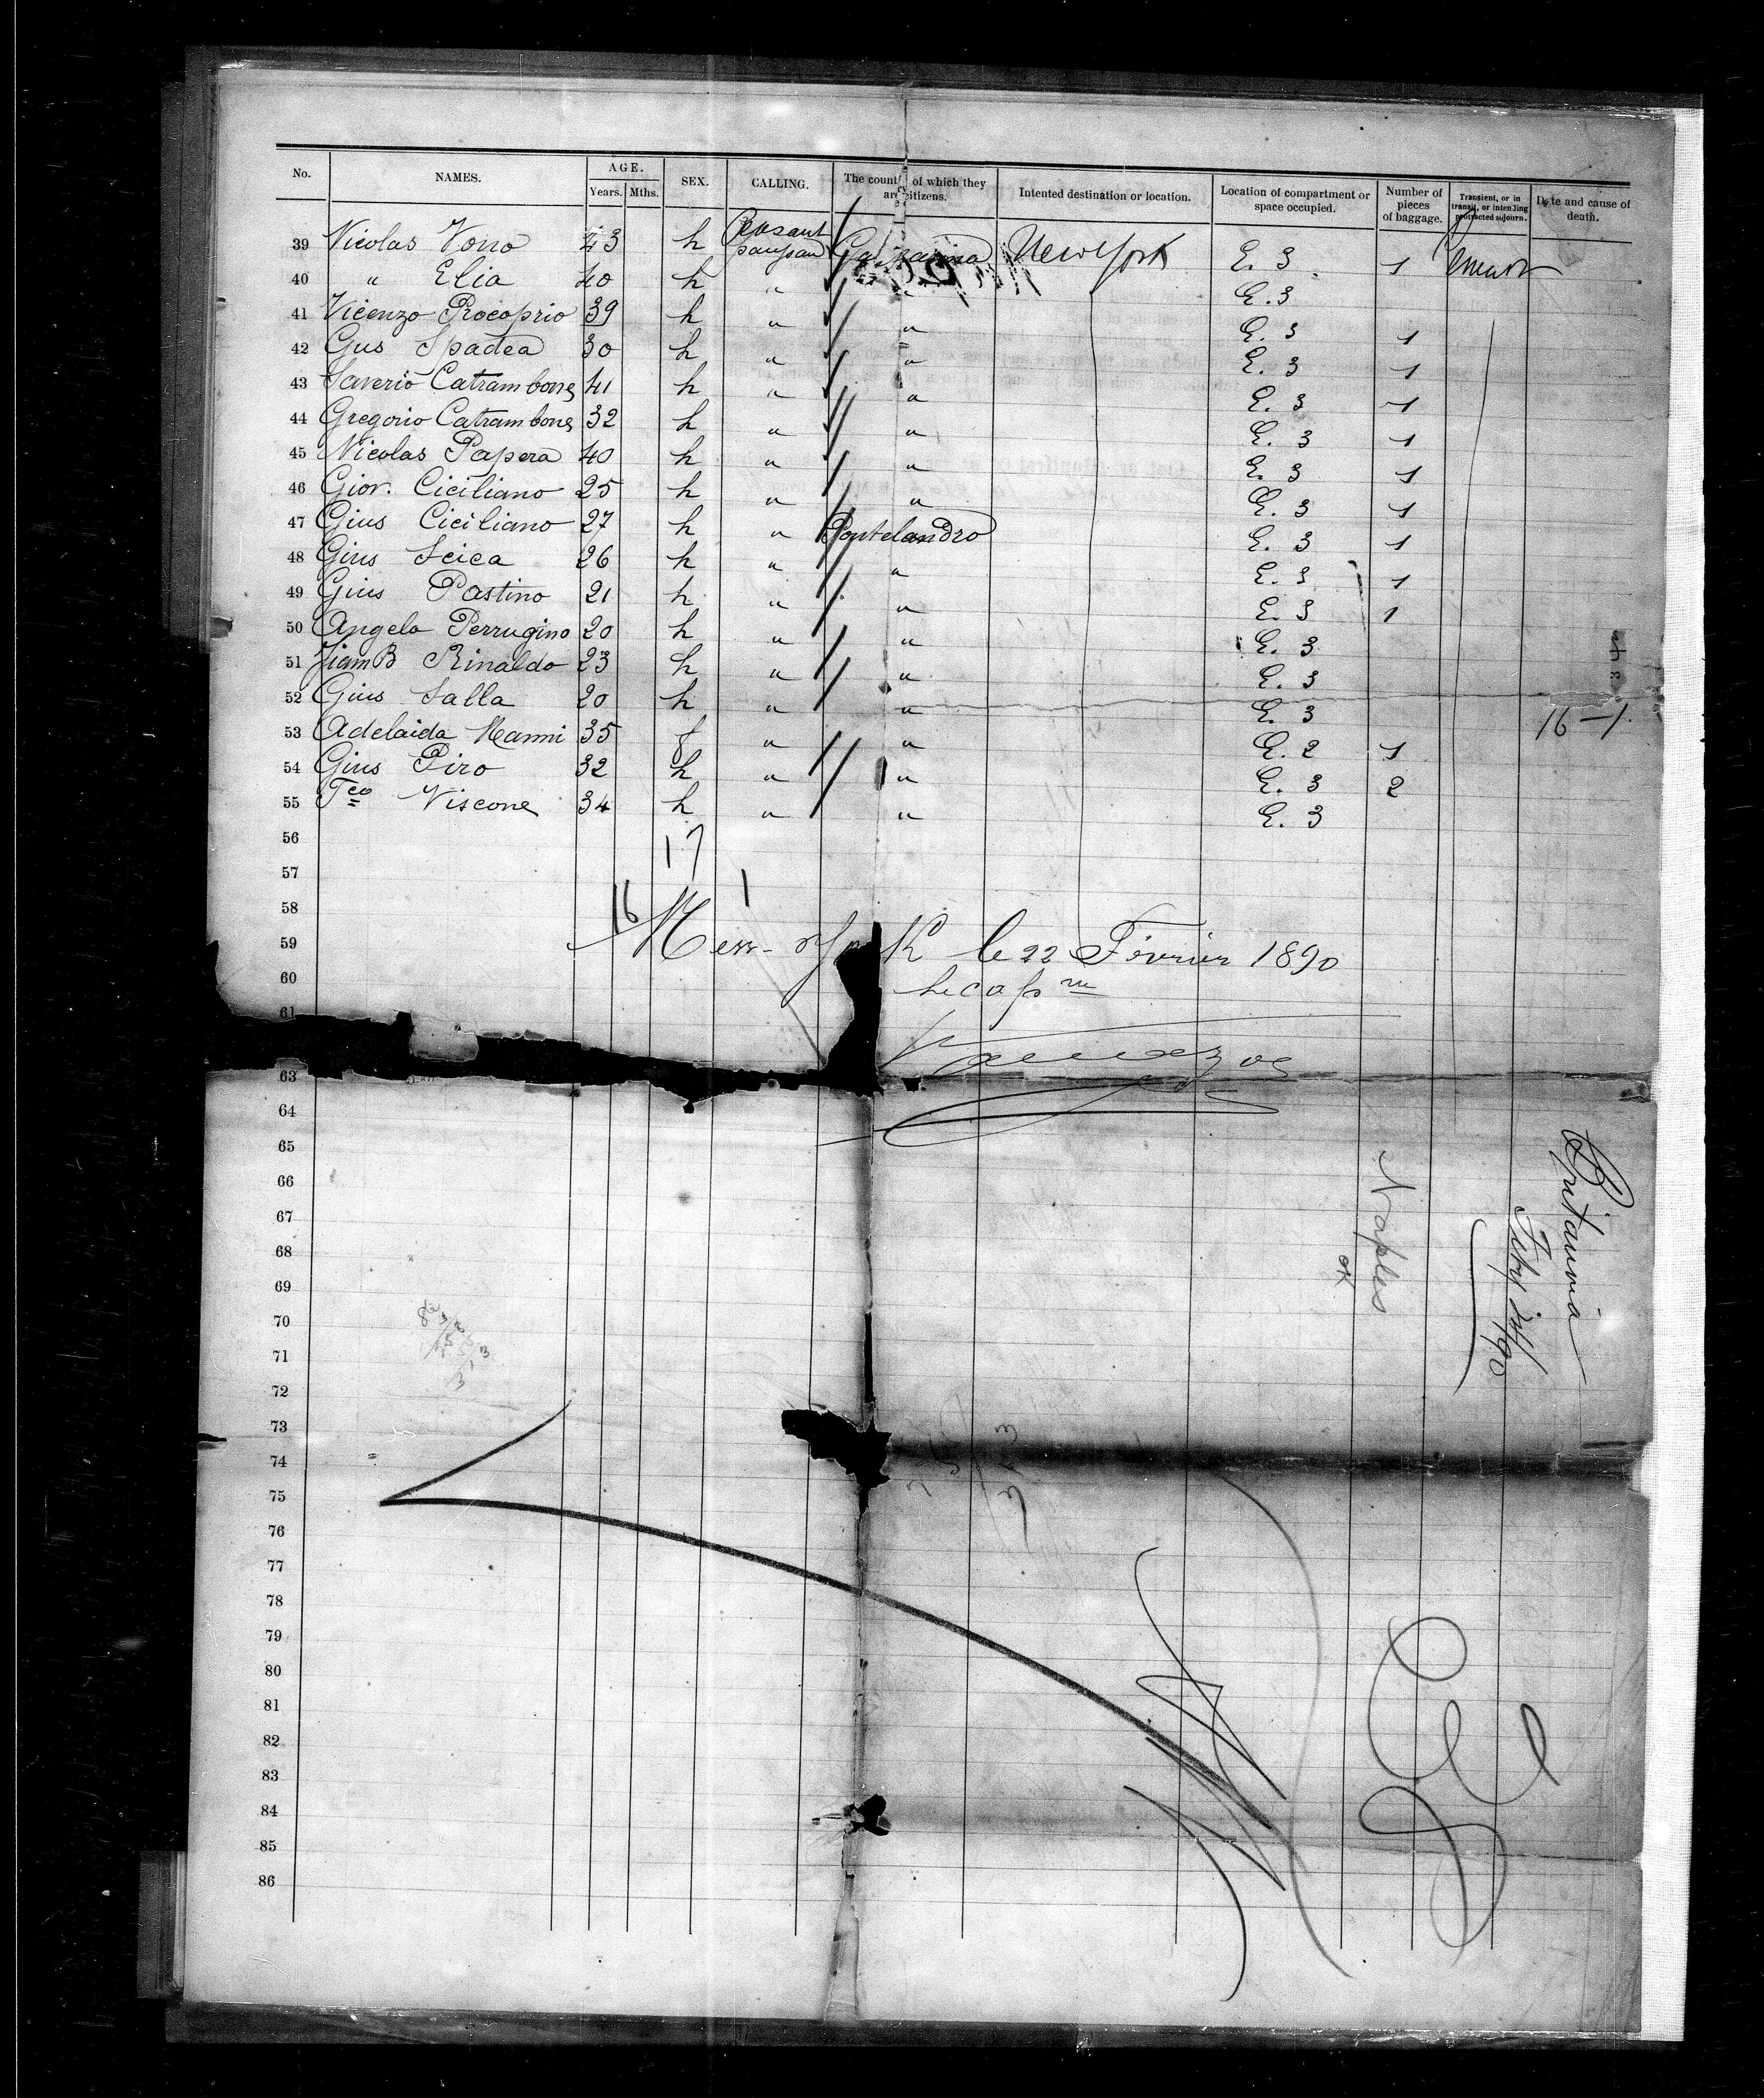 No. NAMES. AGE. SEX. CALLING. The count of which they are citizens. Intented destination or location. Location of compartment or space occupied. Number of pieces of baggage. Transient, or in transit, or intending protracted sojourn. Date and cause of death.
Years. Mths.
39 Nicolas Vono 43 h Peasant paysan New York E. 3 1
40 " Elia 40 h " " E. 3
41 Vicenzo Procoprio 39 h " " E. 3 1
42 Gus Spadea 30 h " " E. 3 1
43 Saverio Catrambone 41 h " " E. 3 1
44 Gregorio Catrambone 32 h " " E. 3 1
45 Nicolas Papera 40 h " " E. 3 1
46 Giov. Ciciliano 25 h " " E. 3 1
47 Gius Ciciliano 27 h " Pontelandro E. 3 1
48 Gius Scica 26 h " " E. 3 1
49 Gius Pastino 21 h " " E. 3 1
50 Angelo Perrugino 20 h " " E. 3
51 Jiam B Rinaldo 23 h " " E. 3
52 Gius Salla 20 h " " E. 3
53 Adelaida Manni 35 f " " E. 2 1
54 Gius Piro 32 h " " E. 3 2
55 Fco Viscone 34 h " " E. 3
16 – 1.
56
17
57
58
16 1
59
New-York le 22 Février 1890
60
le cap ne
61
63
64
65
66
67
68
69
70
71
72
73
74
75
76
77
78
79
80
81
82
83
84
85
86
Britannia
Naples
ok